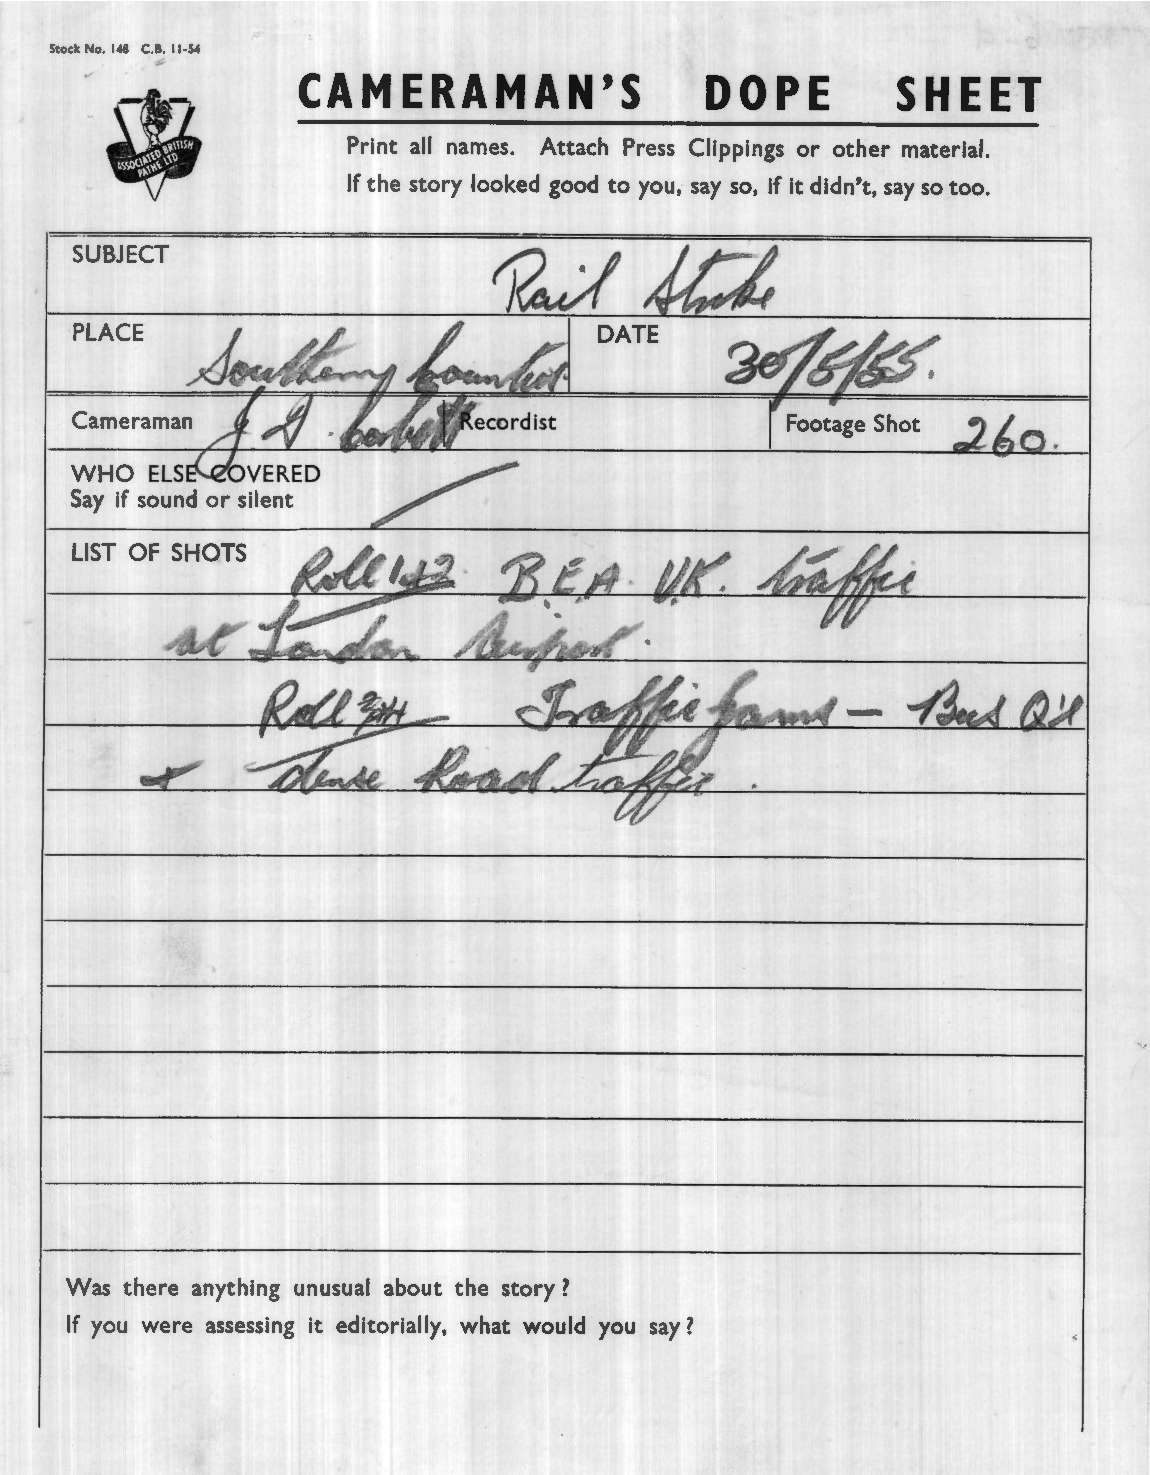 Stock No. 148 C.B. 11-54
CAMERAMAN'S DOPE SHEET
ASSOCIATED BRITISH
PATHE LTD
Print all names. Attach Press Clippings or other material.
If the story looked good to you, say so, if it didn't, say so too.
SUBJECT
Rail Strike
PLACE Southern Counties DATE 30/5/55.
Cameraman J G Corbett Recordist Footage Shot 260.
WHO ELSE COVERED
Say if sound or silent
LIST OF SHOTS Roll 1+2. B.E.A. U.K. traffic
at London Airport.
Roll 3+4 Traffic jams — Bus Q's
+ dense Road traffic.
Was there anything unusual about the story?
If you were assessing it editorially, what would you say?